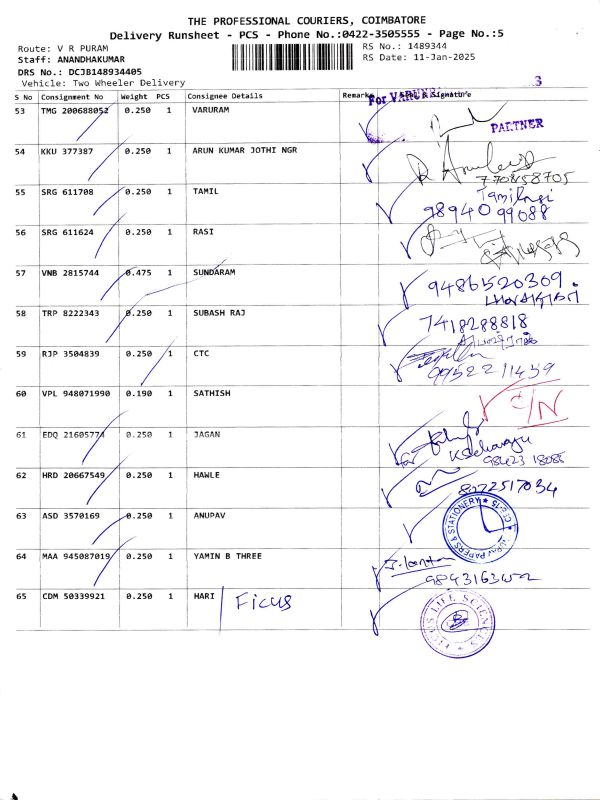 THE PROFESSIONAL COURIERS, COIMBATORE
Delivery Runsheet - PCS - Phone No.:0422-3505555 - Page No.:5
Route: V R PURAM
RS No.: 1489344
Staff: ANANDHAKUMAR
RS Date: 11-Jan-2025
DRS No.: DCJB148934405
Vehicle: Two Wheeler Delivery
3
S No Consignment No Weight PCS Consignee Details Remarks & Signature
For VARUNA
53 TMG 200688052 0.250 1 VARURAM
PARTNER
54 KKU 377387 0.250 1 ARUN KUMAR JOTHI NGR
7708458705
55 SRG 611708 0.250 1 TAMIL
98940 99088
56 SRG 611624 0.250 1 RASI
57 VNB 2815744 0.475 1 SUNDARAM
9486520309
58 TRP 8222343 0.250 1 SUBASH RAJ
7418288818
59 RJP 3504839 0.250 1 CTC
9952211459
60 VPL 948071990 0.190 1 SATHISH
C/N
61 EDQ 21605774 0.250 1 JAGAN
for
98423 18085
62 HRD 20667549 0.250 1 HAWLE
8072517034
63 ASD 3570169 0.250 1 ANUPAV
PAPERS & STATIONERY
CBE-15
64 MAA 945087019 0.250 1 YAMIN B THREE
65 CDM 50339921 0.250 1 HARI Ficus
FICUS LIFE SCIENCES